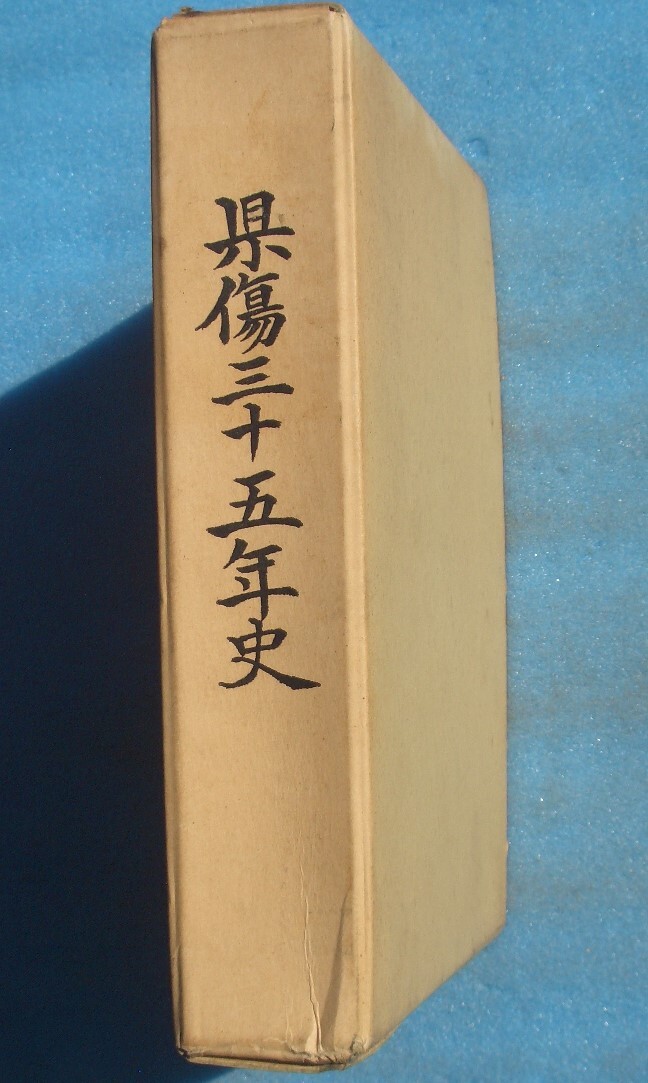 県傷三十五年史